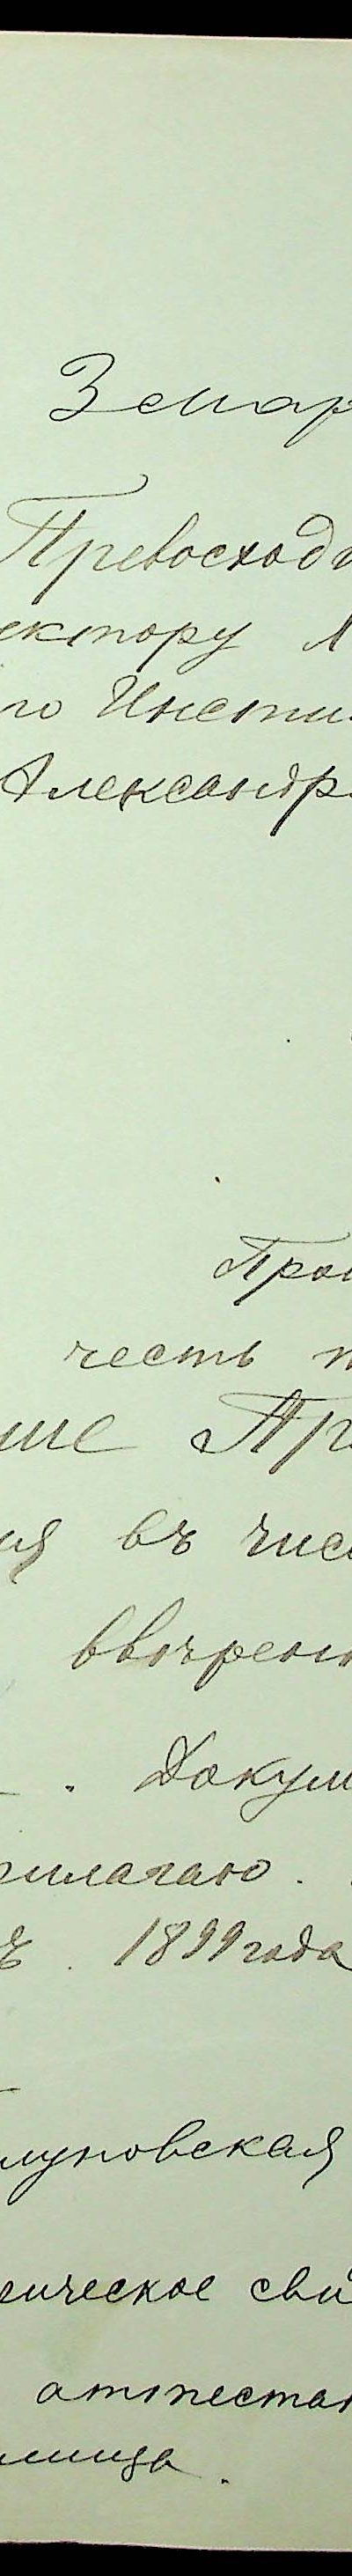 3 смар
Превосход
ектору
го Инсти
Александр
Про
честь п
ше Пр
ія въ чис
ввѣрен
. Докум
рилагаю .
. 1899 года
луновская
гическое сви
аттестат
лища .